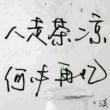 人走茶凉
何必再忆